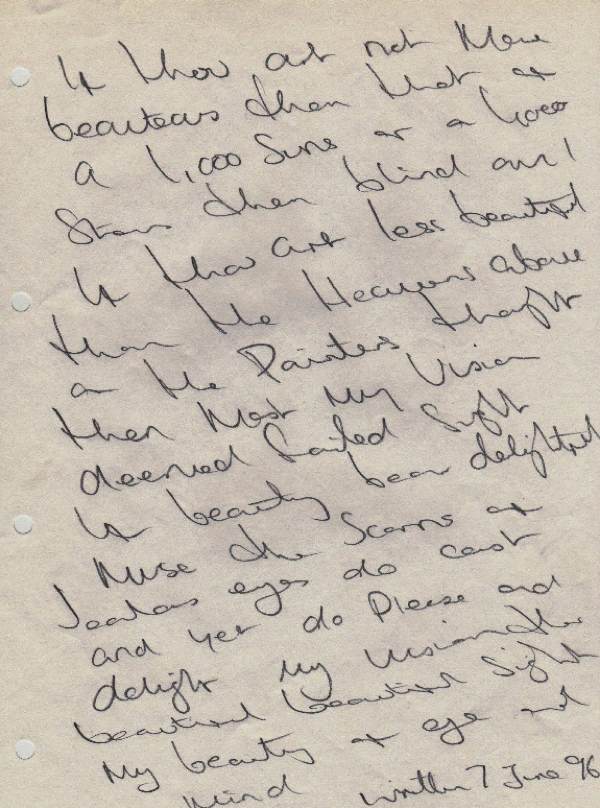 If thou art not More
beauteous than that of
a 1,000 Suns or a 1,000
Stars then blind am I
If thou art less beautiful
than the Heavens above
or the Painters thought
then Most My Vision
deemed failed Sight
If beauty bear delightful
Muse the Scorns of
Jealous eyes do cast
and yet do Please and
delight My Vision the
beautiful beautiful Sight
My beauty of eye and
Mind written 7 June 96